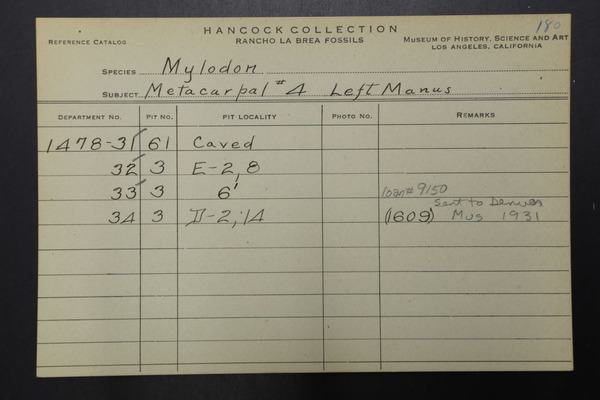 180
HANCOCK COLLECTION
REFERENCE CATALOG RANCHO LA BREA FOSSILS MUSEUM OF HISTORY, SCIENCE AND ART
LOS ANGELES, CALIFORNIA
SPECIES Mylodon
SUBJECT Metacarpal #4 Left Manus
DEPARTMENT NO. PIT NO. PIT LOCALITY PHOTO NO. REMARKS
1478-31 61 Caved
32 3 E-2, 8
33 3 6' loan# 9150
sent to Denver
34 3 D-2, 14 (1609) Mus 1931